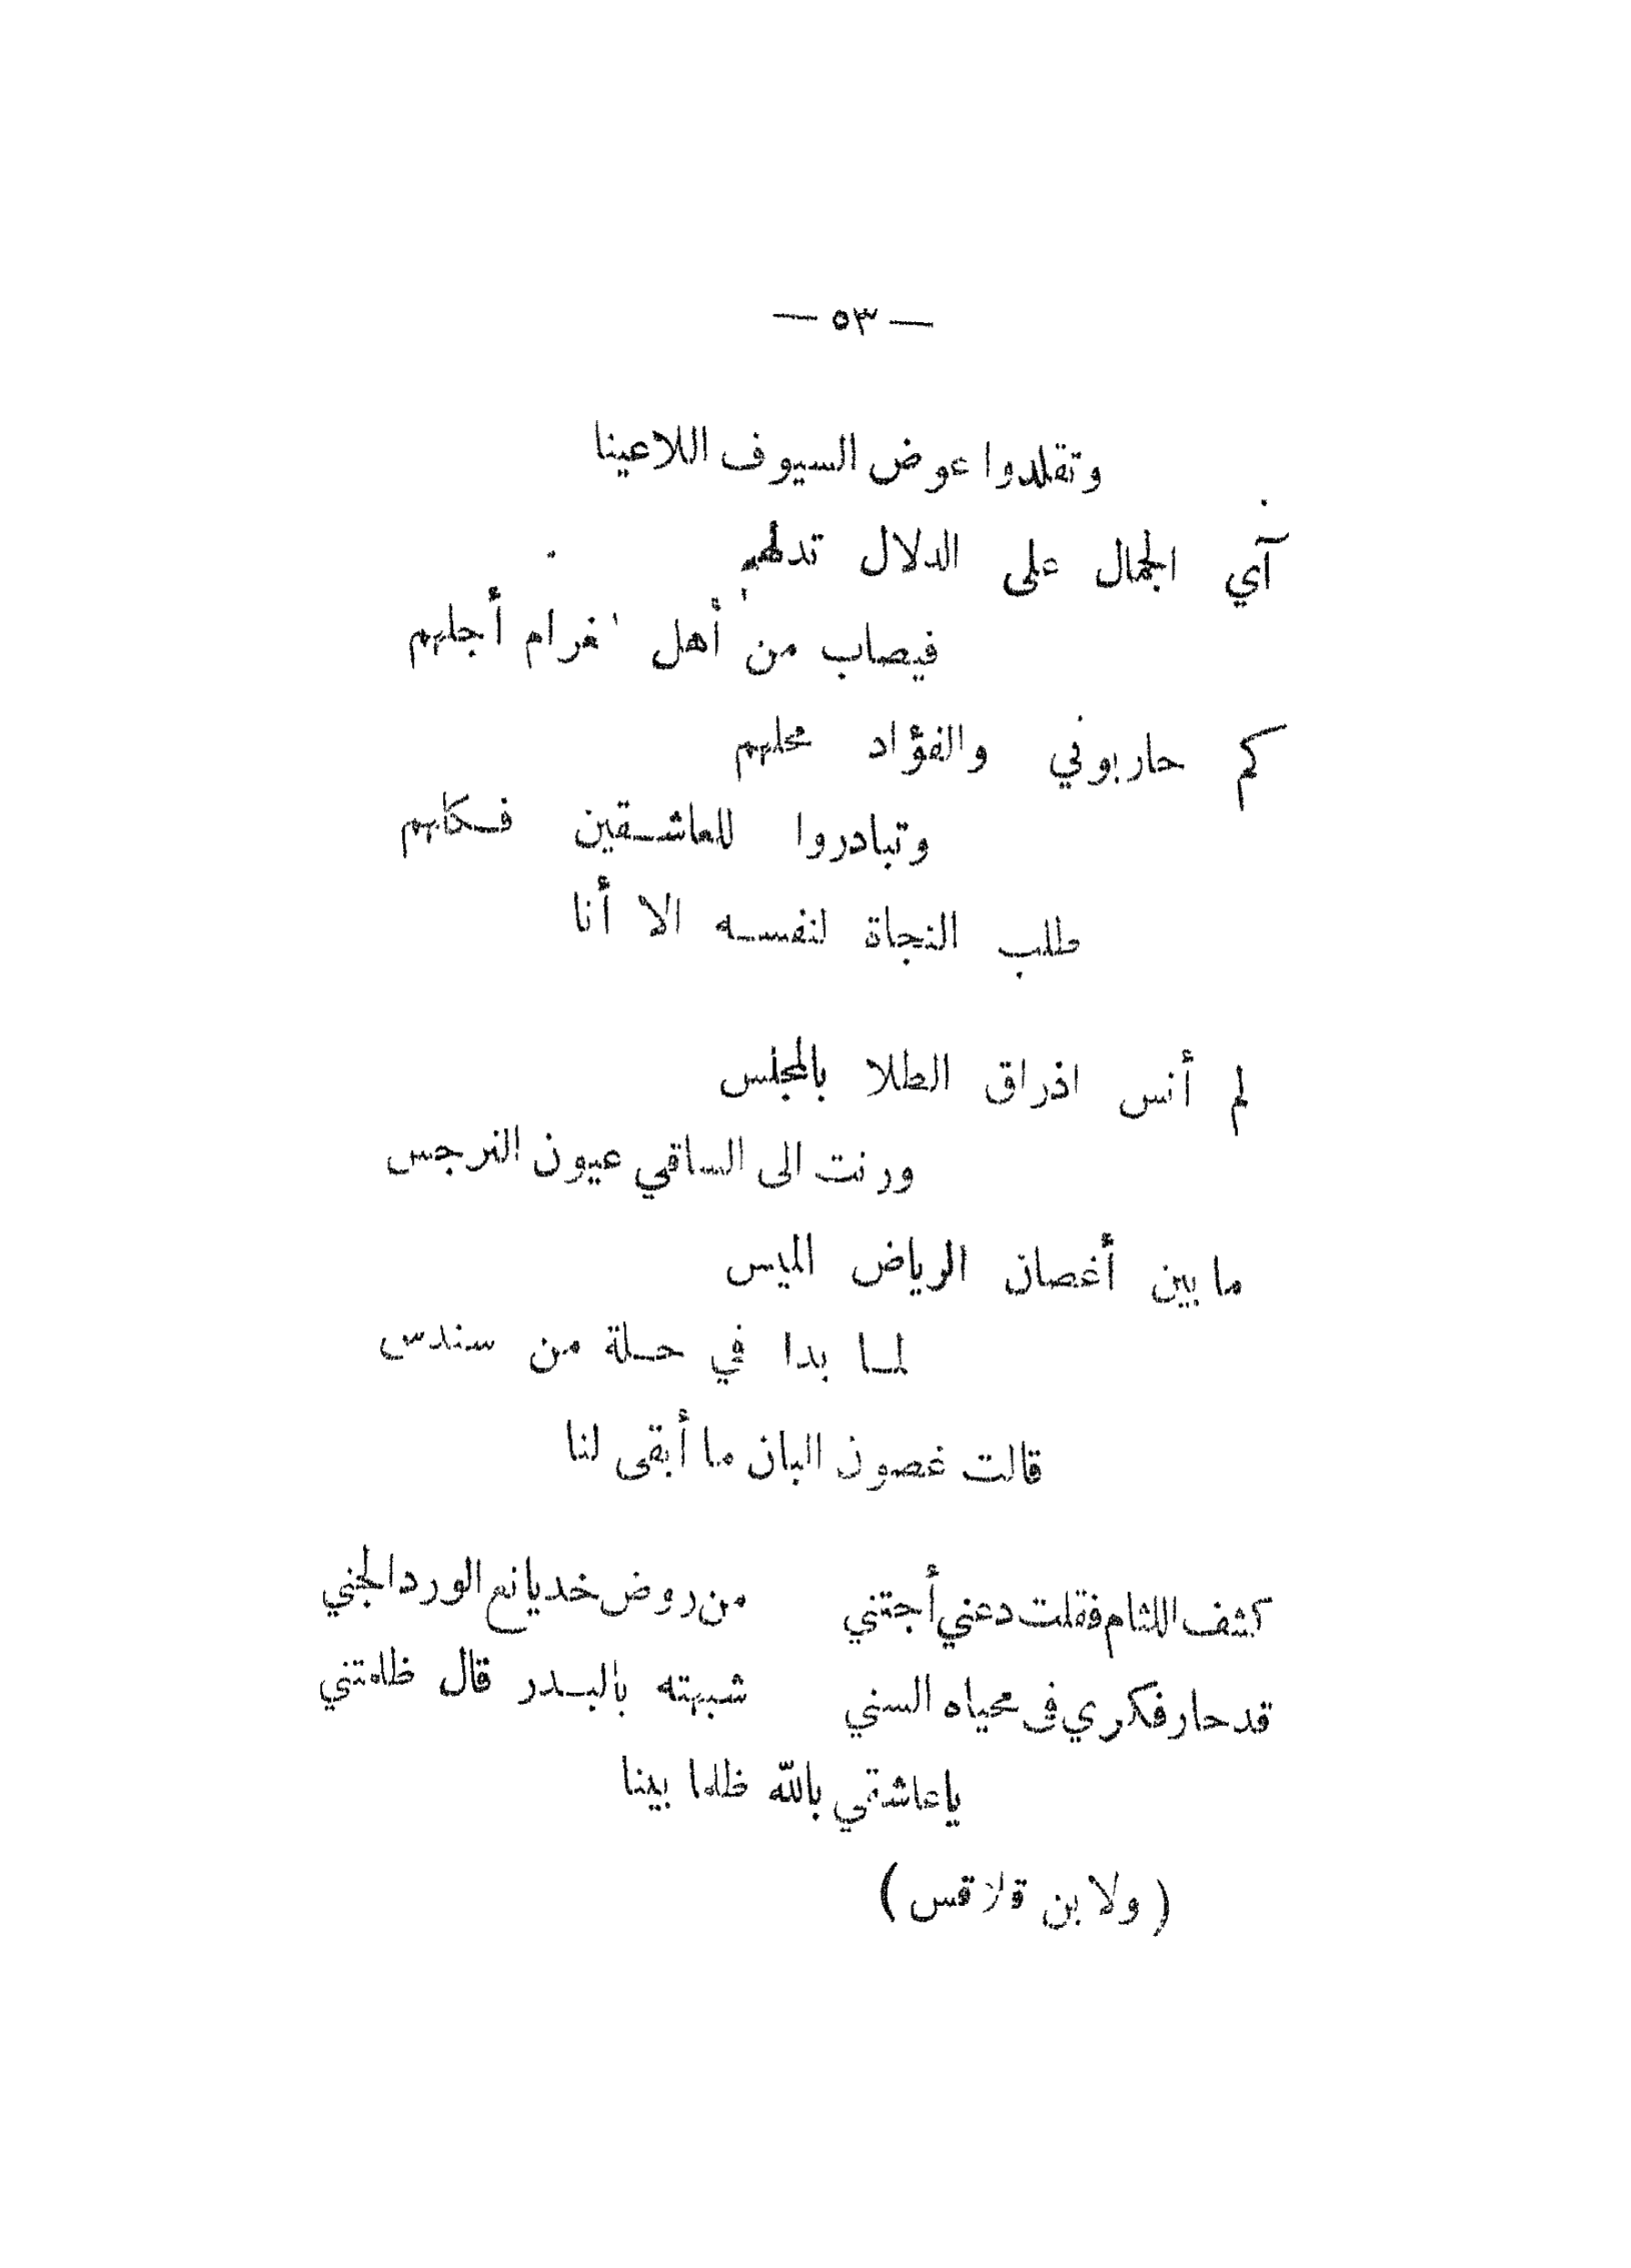 — ٥٣ —
وتقلدوا عوض السيوف اللاعينا
آي الجمال على الدلال تدلهم
فيصاب من أهل الغرام أجلهم
كم حاربوني والفؤاد محلهم
وتبادروا للعاشقين فكلهم
طلب النجاة لنفسه الا أنا
لم أنس اذراق الطلا بالمجلس
ورنت الى الساقي عيون النرجس
ما بين أغصان الرياض الميس
لما بدا في حلة من سندس
قالت غصون البان ما أبقى لنا
كشف اللثام فقلت دعني أجتني من روض خد يانع الورد الجني
قد حار فكري في محياه السني شبهته بالبدر قال ظلمتني
يا عاشقي بالله ظلما بينا
( ولابن قلاقس )